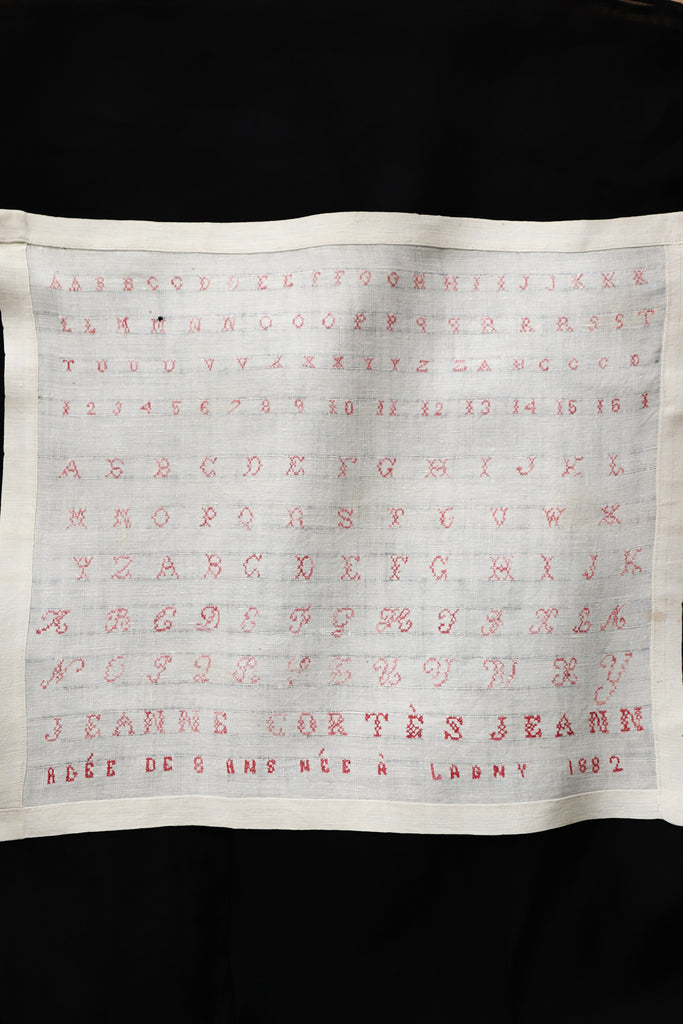 A A B B C C D D E E F F G G H H I I J J K K K
L L M M N N O O O P P Q Q R R R S S T
T U U U V V X X X Y Y Z Z A B C C C D
1 2 3 4 5 6 7 8 9 10 11 12 13 14 15 16 1
A B B C D E F G H I J K L
M N O P Q R S T U V W X
Y Z A B C D E F G H I J K
A B C D E F G H I J K L M
N O P Q R S T U V W X Y
JEANNE CORTÈS JEANN
AGÉE DE 8 ANS NÉE À LAGNY 1882